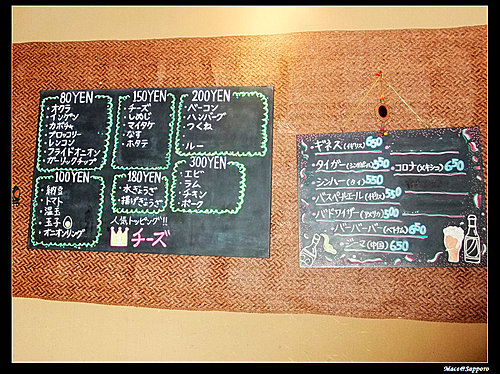 80YEN
・オクラ
・インゲン
・カボチャ
・ブロッコリー
・レンコン
・フライドオニオン
・ガーリックチップ
150YEN
・チーズ
・しめじ
・マイタケ
・なす
・ホタテ
200YEN
・ベーコン
・ハンバーグ
・つくね
・ルー
100YEN
・納豆
・トマト
・温玉
・玉子
・オニオンリング
180YEN
・水ぎょうざ
・揚げぎょうざ
300YEN
・エビ
・ラム
・チキン
・ポーク
人気トッピング!!
チーズ
・ギネス(イギリス) 650
・タイガー(シンガポール) 550
・コロナ(メキシコ) 650
・シンハー(タイ) 550
・バスペールエール(イギリス) 550
・バドワイザー(アメリカ) 500
・バーバーバー(ベトナム) 650
・ジーマ(中国) 650
Mace@Sapporo